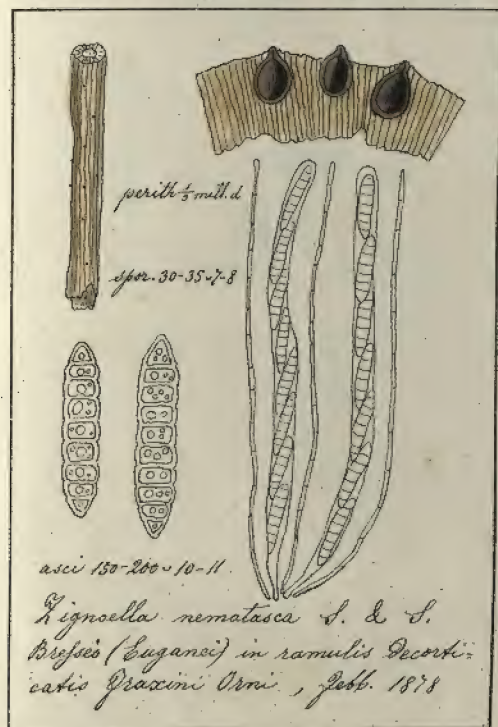 perith. 1/3 mill. d
spor. 30-35 ⌣ 7-8
asci 150-200 ⌣ 10-11.
Zignoella nematasca S. & S.
Bresseo (Euganei) in ramulis decorti=
catis Fraxini Orni, Febb. 1878